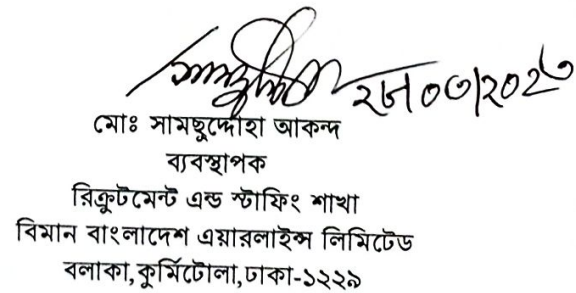 মোঃ সামছুদ্দোহা আকন্দ
ব্যবস্থাপক
রিক্রুটমেন্ট এন্ড স্টাফিং শাখা
বিমান বাংলাদেশ এয়ারলাইন্স লিমিটেড
বলাকা,কুর্মিটোলা,ঢাকা-১২২৯